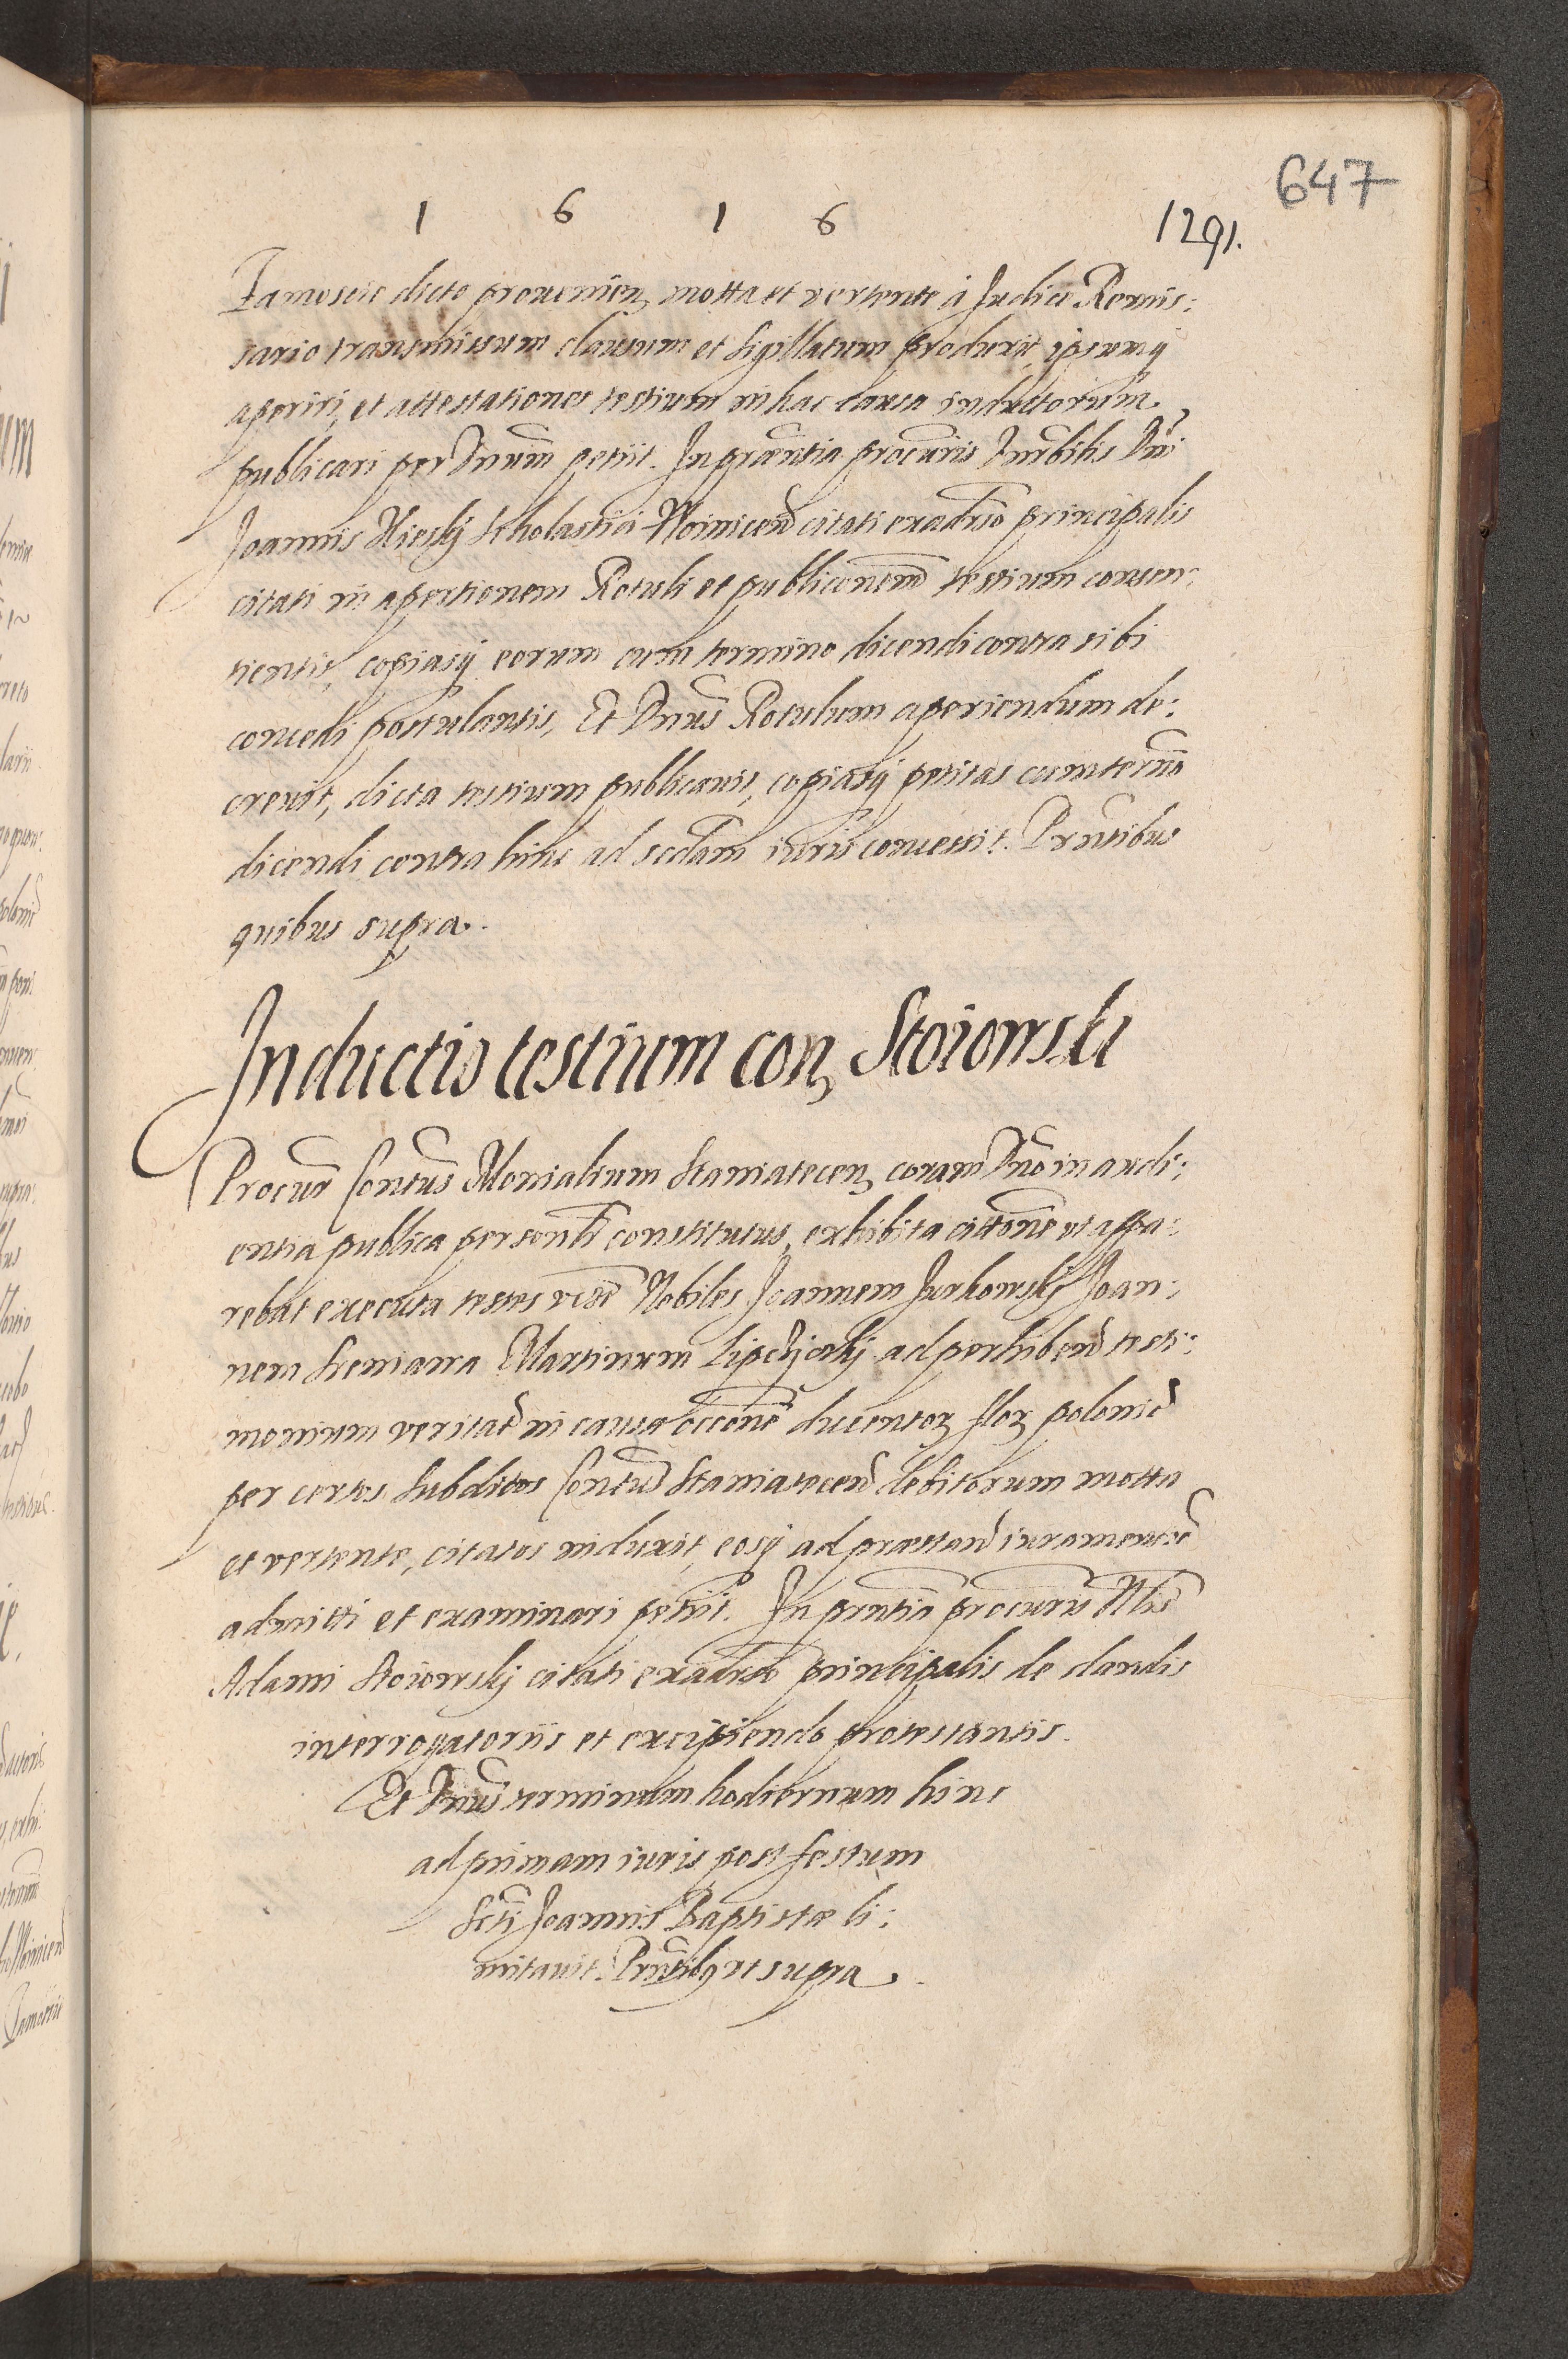 647
1 6 1 6
1291.
Famoseie dicto prouenien motta et vertente à Judice Remis:
sario transmissum clausum et sigillatum produxit ipsumq
aperiri, et attestationes testium in hac causa inductorum
publicari per Dnum petiit. In praentia procuris Dni
Joannis Scholastici citati ex aduso principalis
citati in apertionem Rotuli et publiconem testium consen:
tientis, copiasq eorum cum termino dicendi contra sibi
concedi postulantis, Et Dnus Rotulum aperiendum de:
creuit, dicta testium publicauit, copiasq petitas cum termno
dicendi contra hinc ad scdam iuris concessit. Prntibus
quibus supra.
Inductio testium con Stoiowski
Procur Contus Monialium Staniatecen coram Dno in audi:
entia publica personlr constitutus, exhibita cittone ut appa:
rebat executa testes Nobiles Joannem Jurkowskj Joan:
nem Sreniawa Martinum ad perhibend testi:
monium veritat in causa occone ducentor flor polonic
per certos subditos Contus Staniatecen debitorum motta
et vertente, citatos induxit, eosq ad praestand iurament
admitti et examinari petiit. In prntia procuris Nlis
Adami Stoiowskj citati ex aduso principalis de dandis
interrogatoriis et excipiendo protestantis.
Et Dnus terminum hodiernum hinc
ad primam iuris post festum
Scti Joannis Baptistae li:
mitauit. Prntibq ut supra.